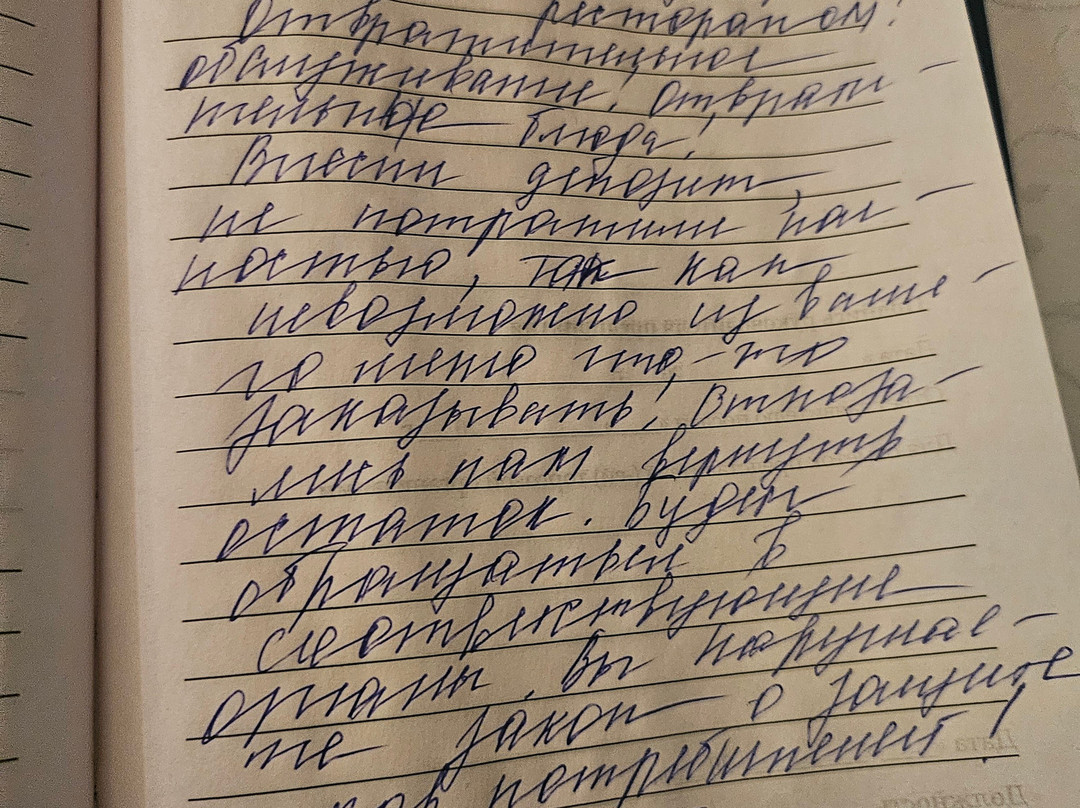 рестораном!
Отвратительное
обслуживание! Отврати-
тельные блюда!
Внесли депозит,
не потратили пол-
ностью, так как
невозможно из ваше-
го меню что-то
заказывать! Отказа-
лись нам вернуть
остаток. Будем
обращаться в
соответствующие
органы. Вы нарушае-
те закон о защите
прав потребителей!
Дата
Должность